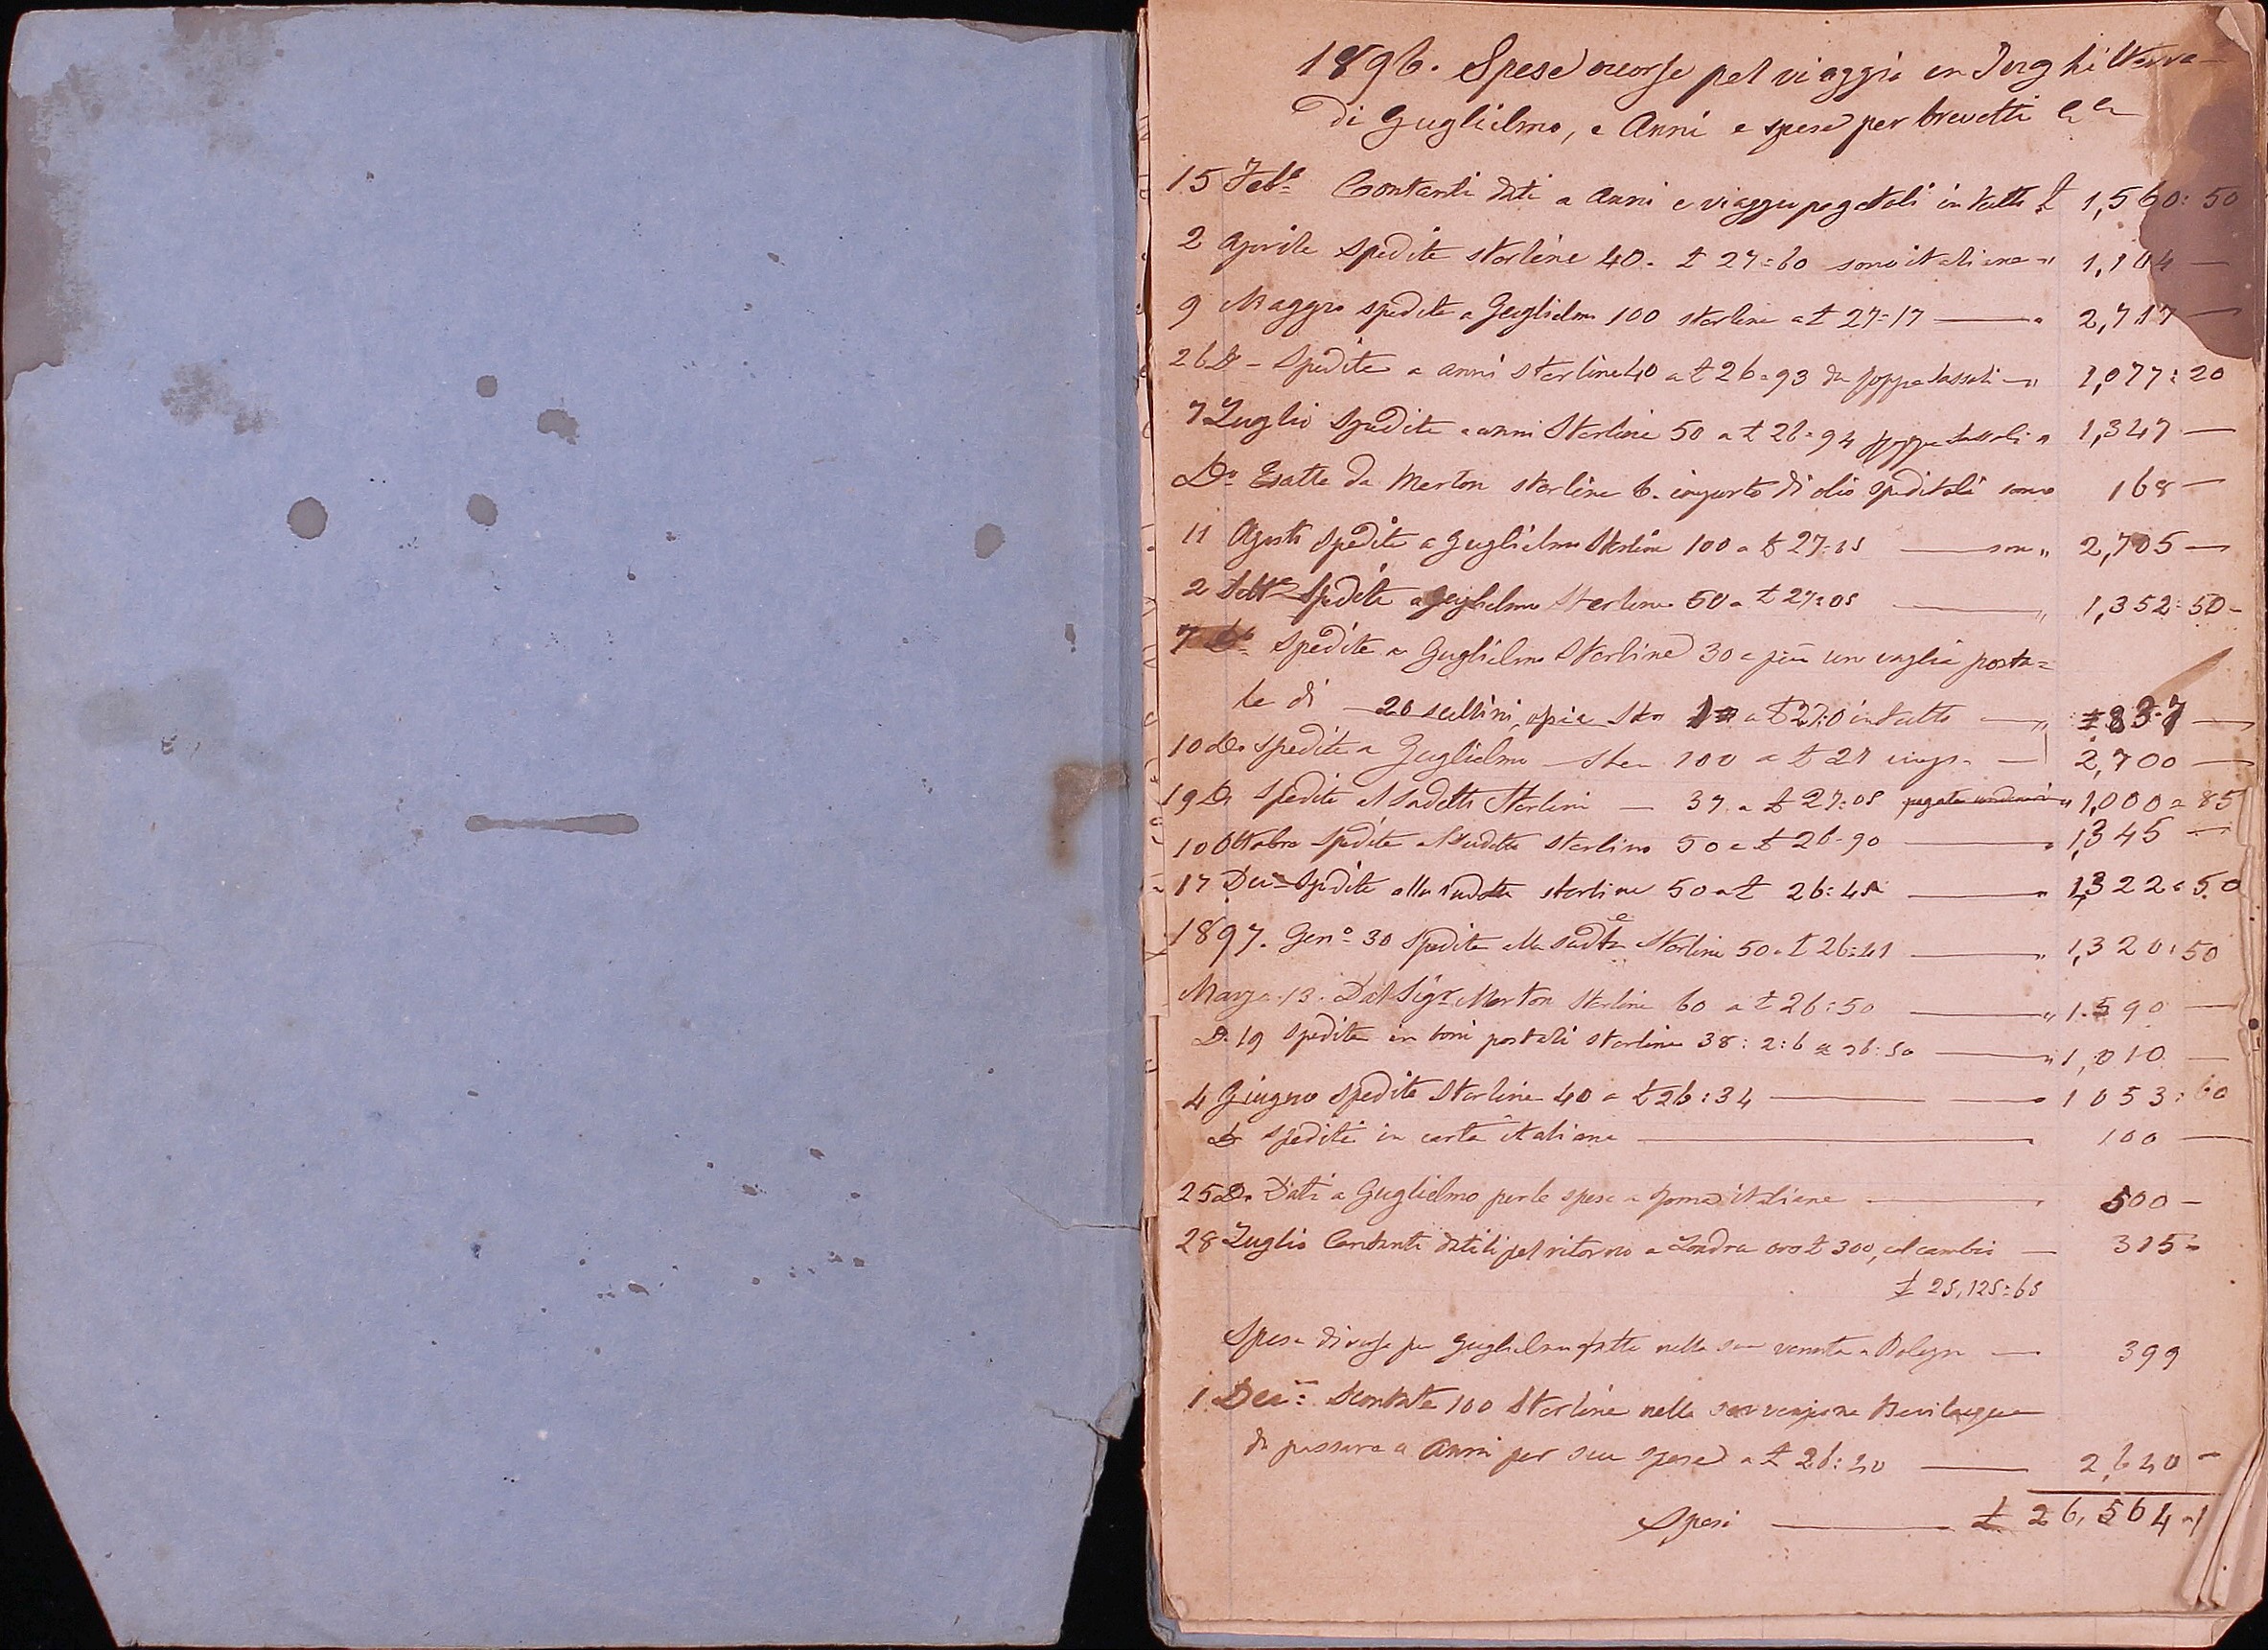 1896. Spese occorse pel viaggio in Inghilterra
di Guglielmo, e Anni e spese per brevetti
15 Feb.º Contanti dati a Anni e viaggio pagatoli in tutto £ 1,560:50
2 Aprile spedite sterline 40. £ 27=60 sono italiane " 1,104 —
9 Maggio spedite a Guglielmo 100 sterline a £ 27=17 — " 2,717 —
26 Dº - Spedite a Anni Sterline 40 a £ 26=93 da — " 1,077:20
7 Luglio spedite a Anni Sterline 50 a £ 26=94 " 1,347 —
Dº Esatte da Merton sterline 6. importo di olio speditoli sono 168 —
11 Agosto spedite a Guglielmo Sterline 100 a £ 27=05 — sono " 2,705 —
2 Sett.e Spedite a Guglielmo Sterline 50 a £ 27=05 — " 1,352=50 -
7 Dº Spedite a Guglielmo Sterline 30 e più un vaglia posta=
le di — 20 scellini, ossia Ster 1 a £ 27:0 in tutto — " 837 —
10 Dº spedite a Guglielmo — Ster 100 a £ 27 — 2,700 —
19 Dº Spedite al sudetto Sterline — 37 a £ 27=05 " 1,000=85
10 Ottobre Spedite al sudetto sterline 50 a £ 26-90 — " 1,345 —
17 Dec.e Spedite alla sudetta sterline 50 a £ 26:45 — " 1,322=50
1897. Genº 30 Spedite alla sudte Sterline 50 a £ 26=41 — " 1,320:50
Marzo. 13. Dal Sigr Merton Sterline 60 a £ 26:50 — " 1.590 —
Dº 19 Spedite in boni postali sterline 38:2:6 a 26:50 — " 1,010 —
4 Giugno spedite Sterline 40 a £ 26:34 — — " 1053:60
Dº spedite in carta italiana — " 100 —
25 Dº Dati a Guglielmo per le spese a Roma italiane — " 500 -
28 Luglio Contanti datili pel ritorno a Londra oro £ 300, al cambio — 315 -
£ 25,125=65
Spese diverse per Guglielmo fatte nella sua venuta a Bologna — 399
1 Dec.e Scontate 100 Sterline nella sovvenzione Bevilacqua
da passare a Anni per sue spese a £ 26:40 — 2,640 -
Spesi — £ 26,564